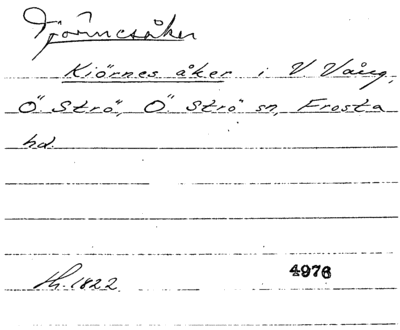 Tjörnesåker
Kiörnes åker i V. Vång,
Ö Strö, Ö Strö sn, Frosta
hd.
Sk. 1822. 4976